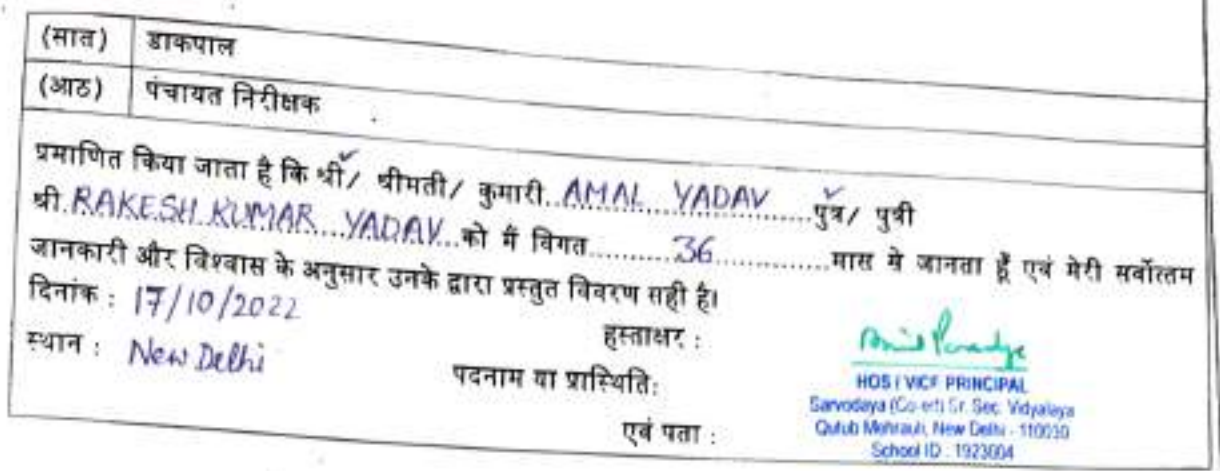 (सात) डाकपाल
(आठ) पंचायत निरीक्षक
प्रमाणित किया जाता है कि श्री/ श्रीमती/ कुमारी..AMAL YADAV.....पुत्र/ पुत्री
श्री.RAKESH KUMAR YADAV...को मैं विगत..........36..............मास से जानता हूँ एवं मेरी सर्वोत्तम
जानकारी और विश्वास के अनुसार उनके द्वारा प्रस्तुत विवरण सही है।
दिनांक : 17/10/2022
हस्ताक्षर :
स्थान : New Delhi
पदनाम या प्रास्थिति:
HOS / VICE PRINCIPAL
Sarvodaya (Co-ed) Sr. Sec. Vidyalaya
एवं पता :
Qutub Mehrauli, New Delhi - 110030
School ID : 1923004